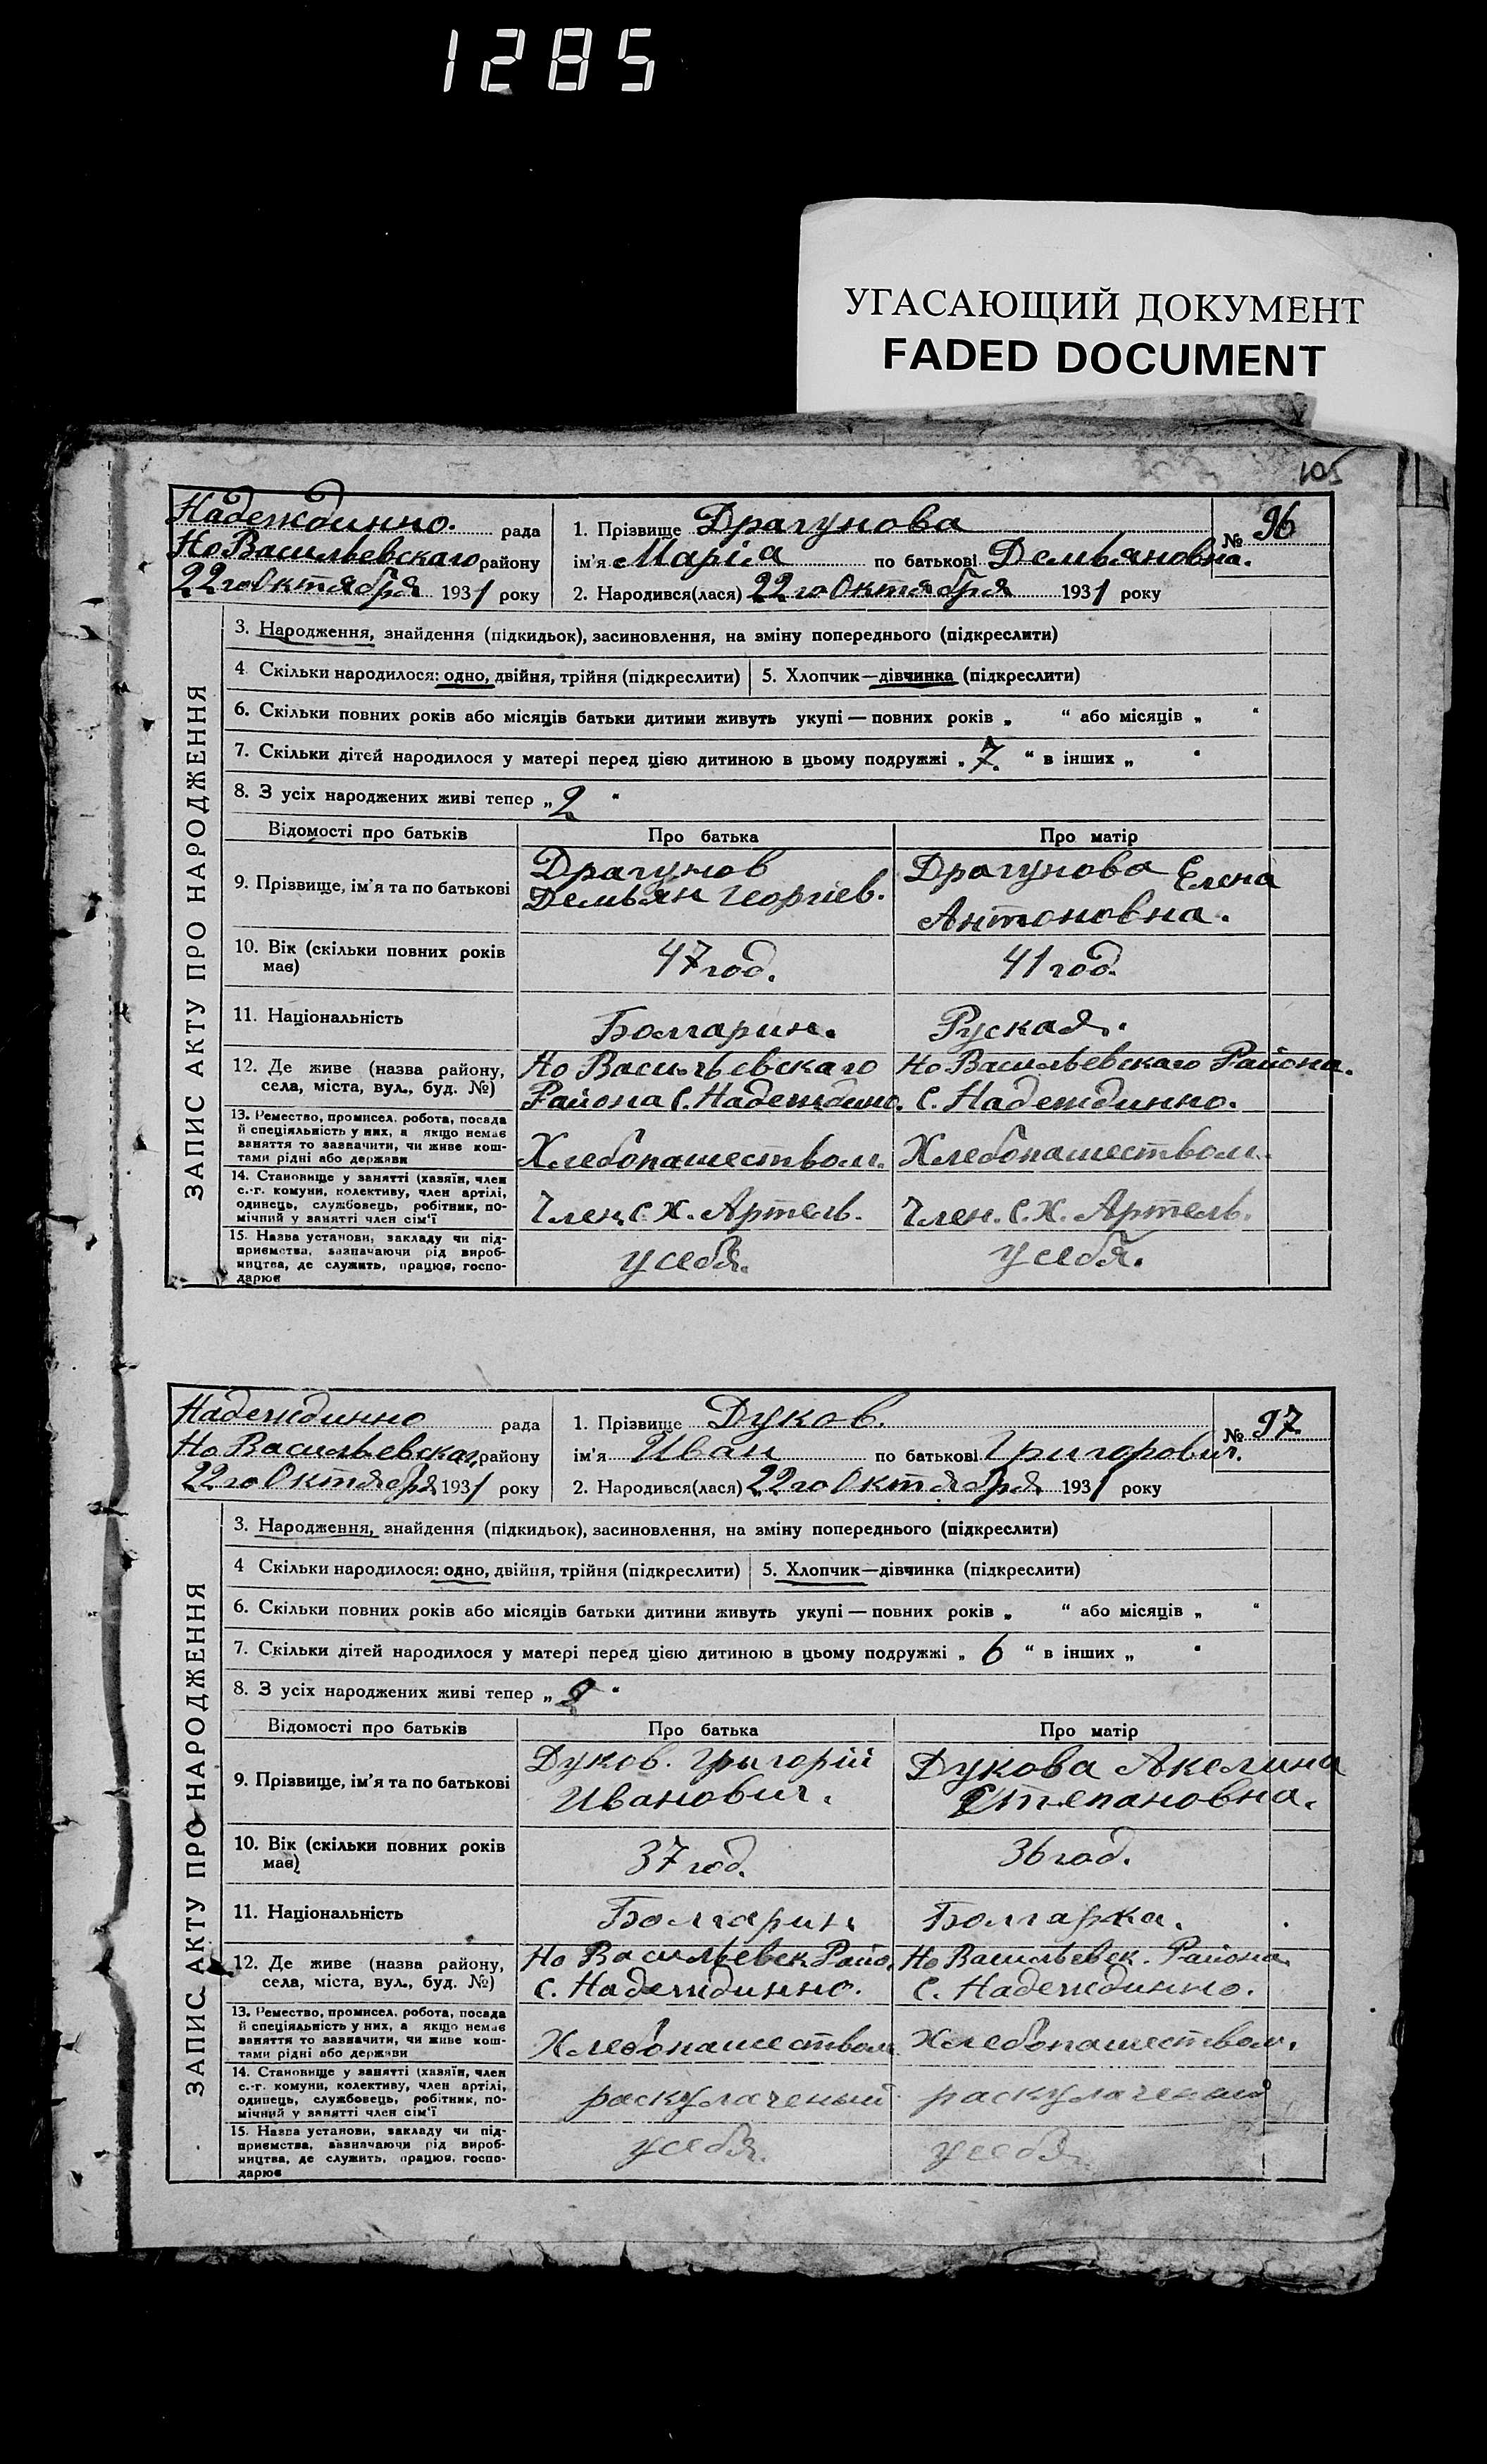 1285
УГАСАЮЩИЙ ДОКУМЕНТ
FADED DOCUMENT
105
Надеждинно. рада
Но Васильевскаго району
22го Октября 1931 року
1. Прізвище Драгунова
№ 96
ім'я Маріа по батькові Демьяновна.
2. Народився(лася) 22го Октября 1931 року
ЗАПИС АКТУ ПРО НАРОДЖЕННЯ
3. Народження, знайдення (підкидьок), засиновлення, на зміну попереднього (підкреслити)
4 Скільки народилося: одно, двійня, трійня (підкреслити) 5. Хлопчик—дівчинка (підкреслити)
6. Скільки повних років або місяців батьки дитини живуть укупі — повних років „ “ або місяців „ “
7. Скільки дітей народилося у матері перед цією дитиною в цьому подружжі „ 7. “ в інших „ “
8. З усіх народжених живі тепер „ 2 “
Відомості про батьків Про батька Про матір
9. Прізвище, ім'я та по батькові
Драгунов
Демьян Георгіев.
Драгунова Елена
Антоновна.
10. Вік (скільки повних років
має)
47 год.
41 год.
11. Національність
Болгарин.
Руская.
12. Де живе (назва району,
села, міста, вул., буд. №)
Но Васильевскаго
Района С. Надеждино.
Но Васильевскаго Района.
С. Надеждинно.
13. Ремество, промисел, робота, посада
й спеціяльність у них, а якщо немає
заняття то зазначити, чи живе кош-
тами рідні або держави
Хлебопашеством.
Хлебопашеством.
14. Становище у занятті (хазяїн, член
с.-г. комуни, колективу, член артілі,
одинець, службовець, робітник, по-
мічний у занятті член сім'ї
Член С. Х. Артель.
Член. С. Х. Артель.
15. Назва установи, закладу чи під-
приємства, зазначаючи рід вироб-
ництва, де служить, працює, госпо-
дарює
у себя.
у себя.
Надеждинно рада
Но Васильевскаго району
22го Октября 1931 року
1. Прізвище Дуков.
№ 97.
ім'я Иван по батькові Григорович.
2. Народився(лася) 22го Октября 1931 року
ЗАПИС АКТУ ПРО НАРОДЖЕННЯ
3. Народження, знайдення (підкидьок), засиновлення, на зміну попереднього (підкреслити)
4 Скільки народилося: одно, двійня, трійня (підкреслити) 5. Хлопчик—дівчинка (підкреслити)
6. Скільки повних років або місяців батьки дитини живуть укупі — повних років „ “ або місяців „ “
7. Скільки дітей народилося у матері перед цією дитиною в цьому подружжі „ 6 “ в інших „ “
8. З усіх народжених живі тепер „ “
Відомості про батьків Про батька Про матір
9. Прізвище, ім'я та по батькові
Дуков. Григорій
Иванович.
Дукова Акелина
Степановна.
10. Вік (скільки повних років
має)
37 год.
36 год.
11. Національність
Болгарин
Болгарка.
12. Де живе (назва району,
села, міста, вул., буд. №)
Но Васильевск Райо.
С. Надеждинно.
Но Васильевск. Района
С. Надеждинно.
13. Ремество, промисел, робота, посада
й спеціяльність у них, а якщо немає
заняття то зазначити, чи живе кош-
тами рідні або держави
Хлебопашеством
Хлебопашеством.
14. Становище у занятті (хазяїн, член
с.-г. комуни, колективу, член артілі,
одинець, службовець, робітник, по-
мічний у занятті член сім'ї
раскулаченый
15. Назва установи, закладу чи під-
приємства, зазначаючи рід вироб-
ництва, де служить, працює, госпо-
дарює
у себя.
у себя